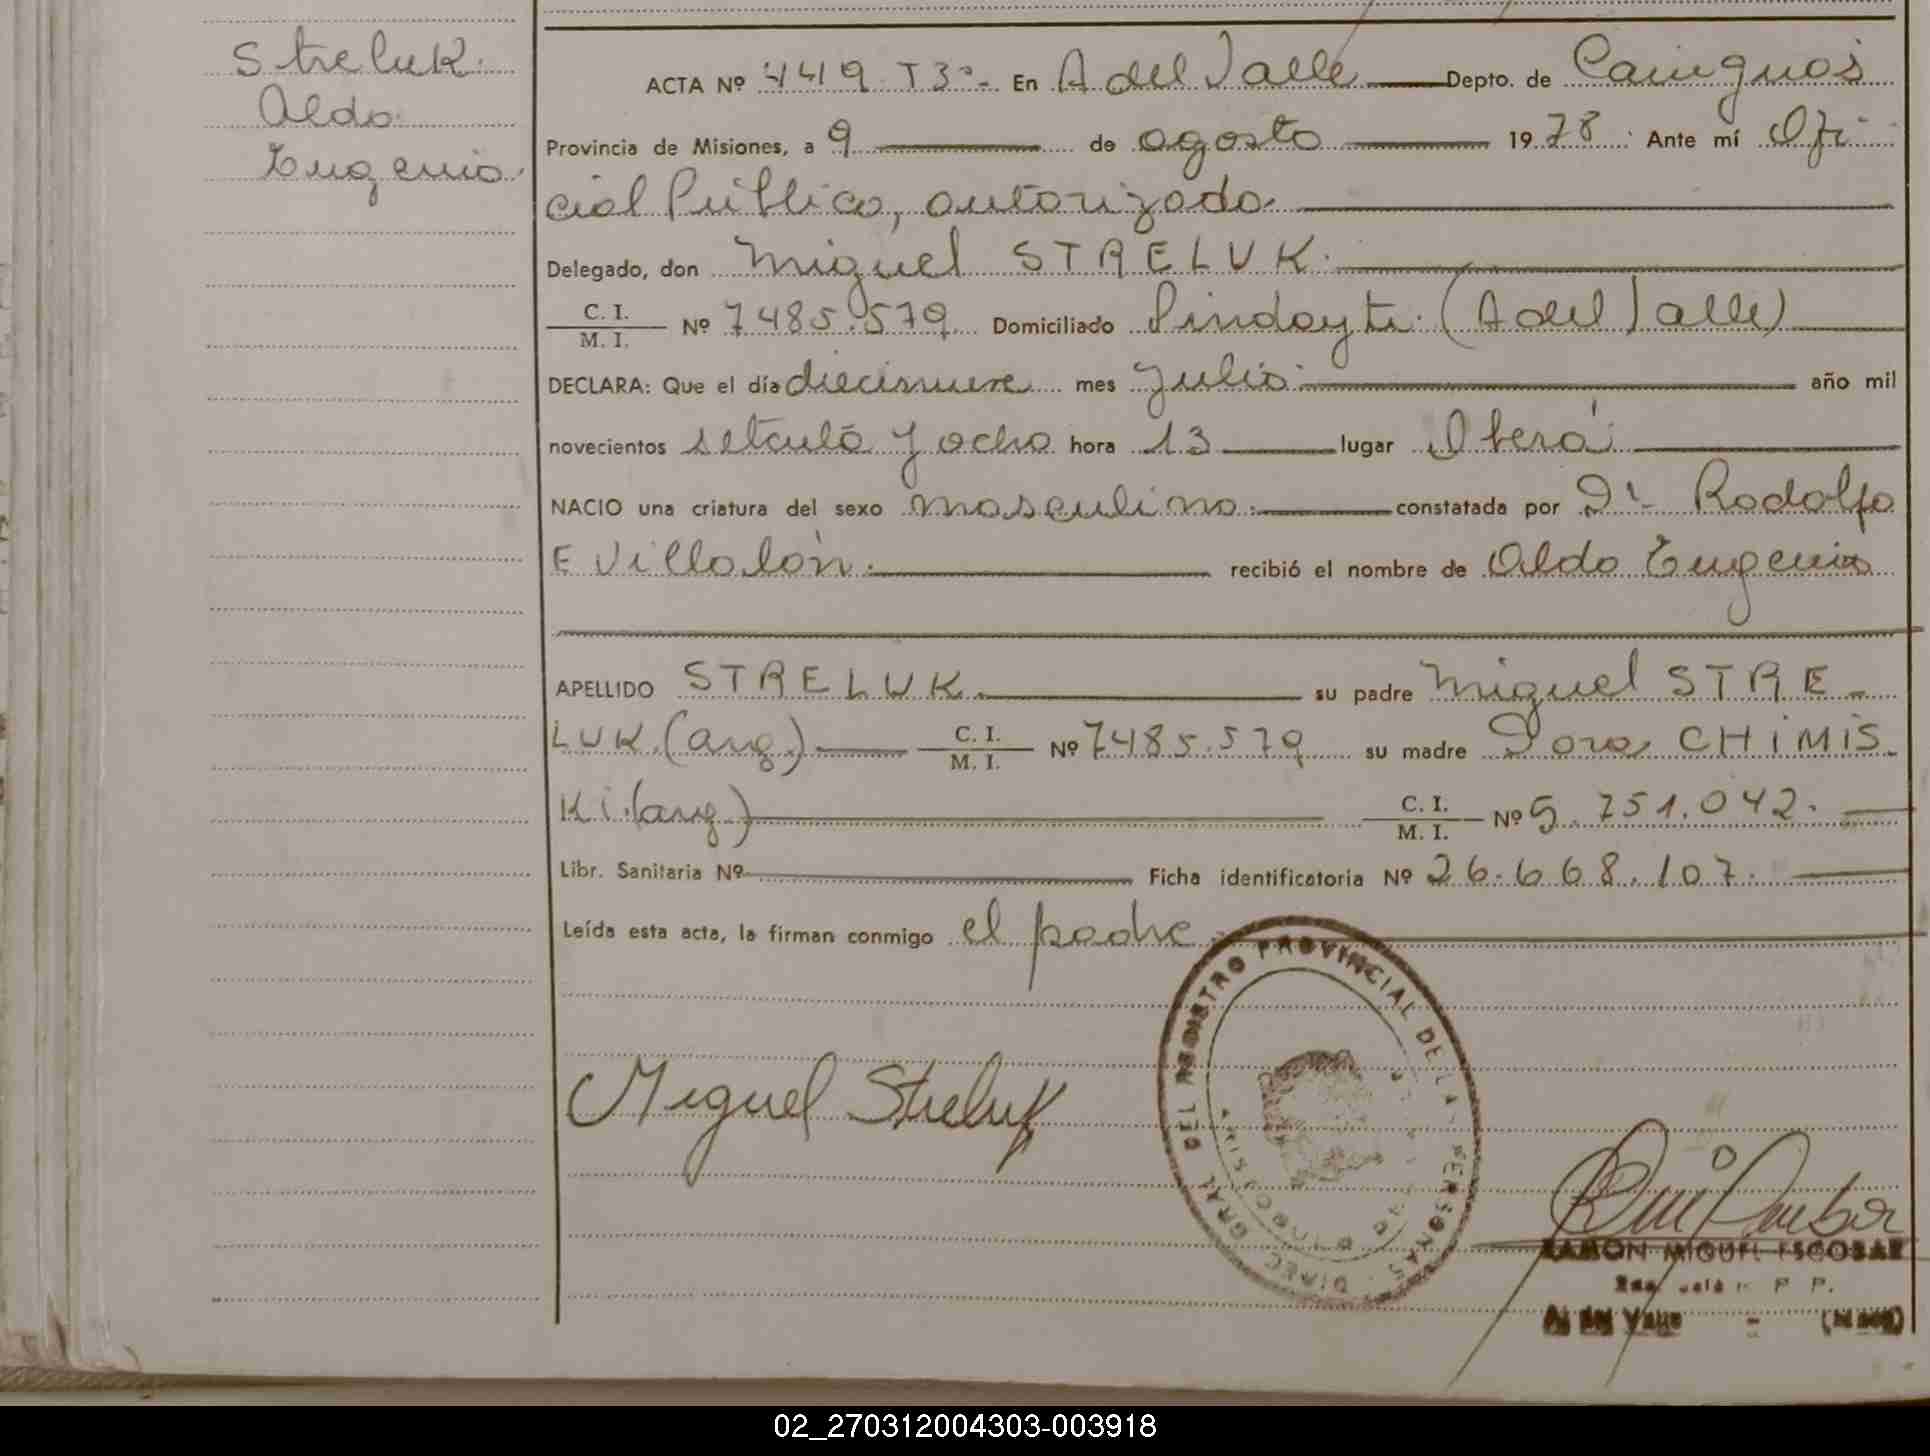 Streluk.
Aldo
Eugenio.
ACTA Nº 449 T3º- En A del Valle Depto. de Cainguás
Provincia de Misiones, a 9 de agosto 1978. Ante mí Ofi
cial Público, autorizado.
Delegado, don Miguel STRELUK.
C. I.
M. I. Nº 7485.579 Domiciliado Pindayti. (A del Valle)
DECLARA: Que el día diecinueve mes Julio año mil
novecientos setenta y ocho hora 13 lugar Oberá
NACIO una criatura del sexo masculino. constatada por Dr Rodolfo
E Villalón. recibió el nombre de Aldo Eugenio
APELLIDO STRELUK. su padre Miguel STRE
LUK. (arg.) C. I.
M. I. Nº 7485.579 su madre Dora CHIMIS
Ki. (arg.) C. I.
M. I. Nº 5.751.042.
Libr. Sanitaria Nº Ficha identificatoria Nº 26.668.107.
Leída esta acta, la firman conmigo el padre.
Miguel Streluk
DIREC. GRAL DEL REGISTRO PROVINCIAL DE LAS PERSONAS
RAMON MIGUEL ESCOBAR
02_270312004303-003918